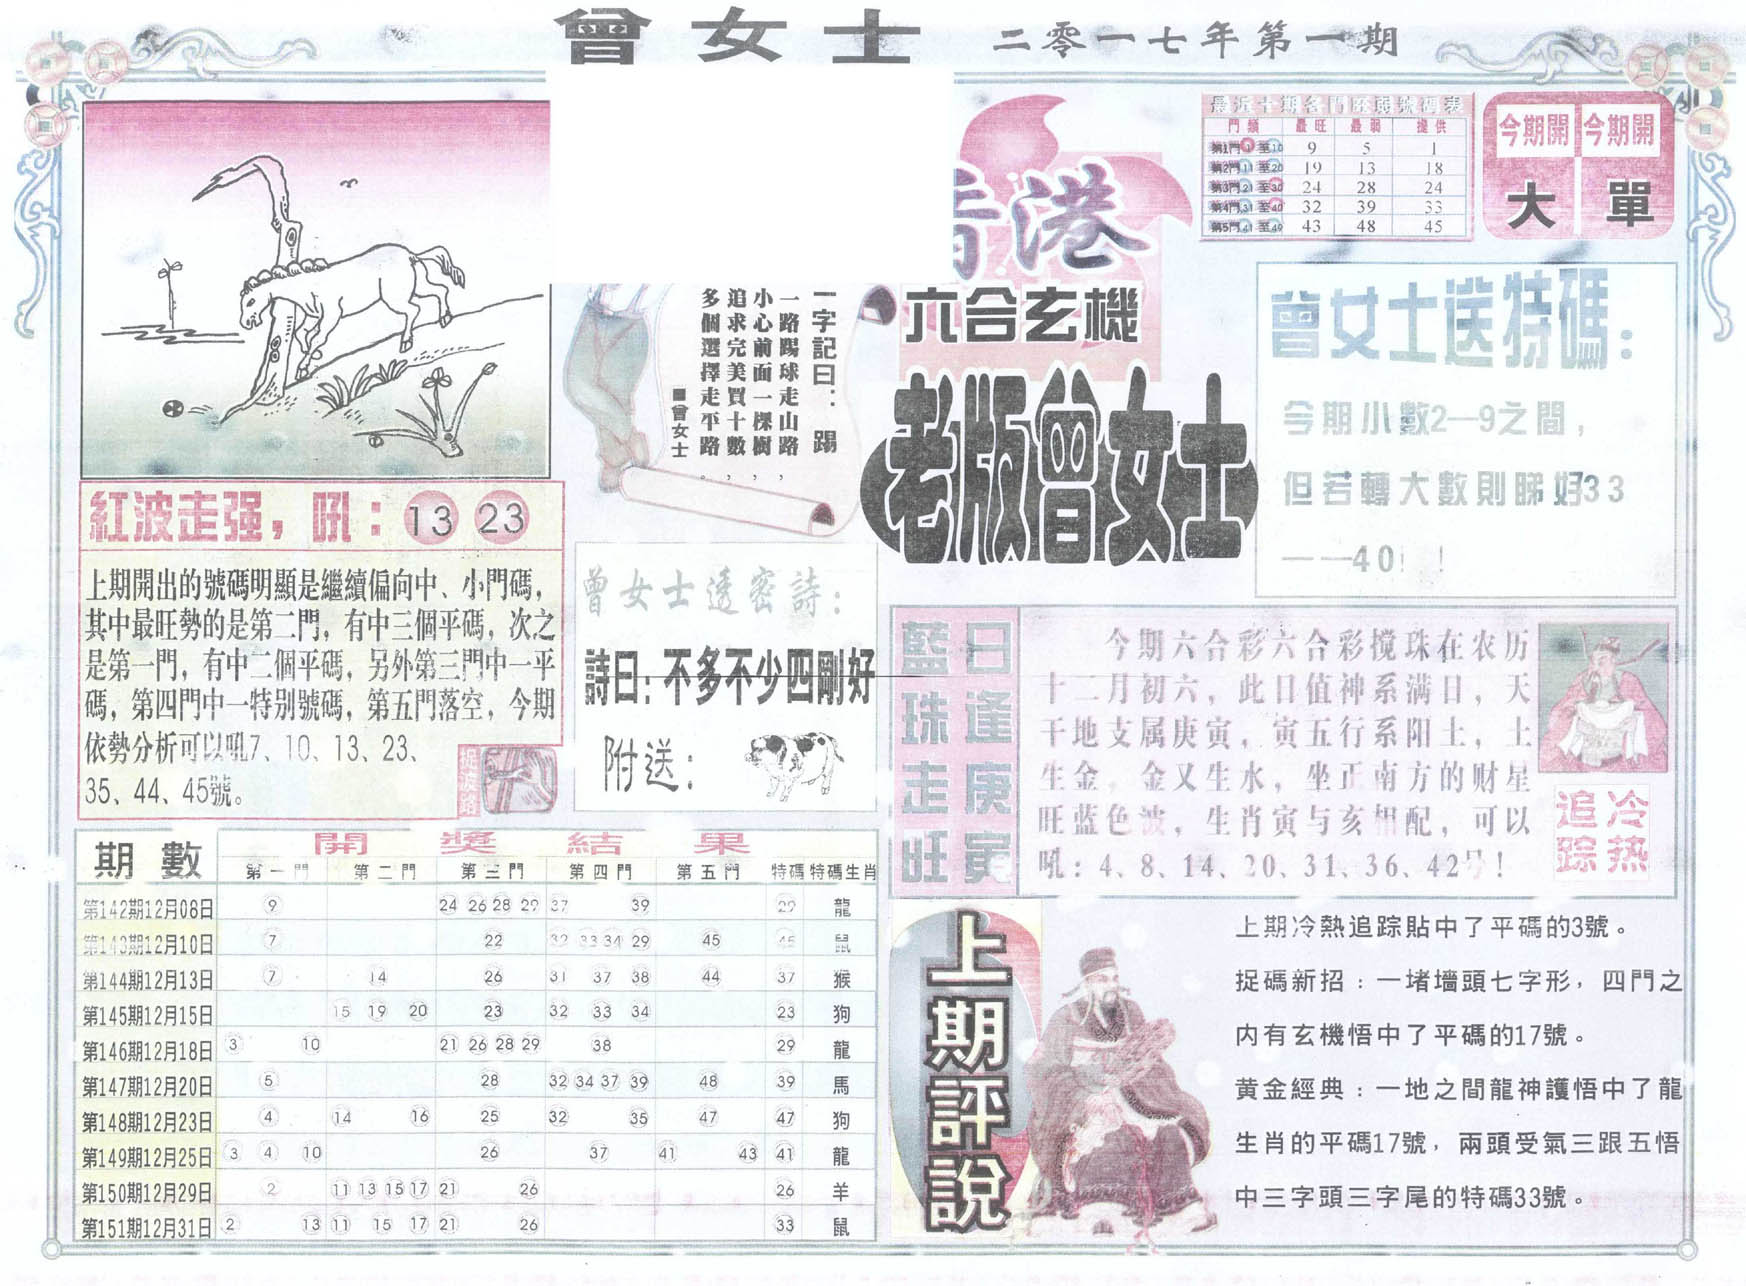 曾女士 二零一七年第一期
最近十期各門旺弱號碼表
門類 最旺 最弱 提供
第1門 1 至10 9 5 1
第2門 11 至20 19 13 18
第3門 21 至30 24 28 24
第4門 31 至40 32 39 33
第5門 41 至49 43 48 45
今期開 今期開
大 單
香港
六合玄機
老版曾女士
一字記曰：踢
一路踢球走山路，
小心前面一棵樹，
追求完美買十數，
多個選擇走平路。
■曾女士
曾女士送特碼：
今期小數2—9之間，
但若轉大數則睇好33
——40！！
紅波走强，吼：13 23
上期開出的號碼明顯是繼續偏向中、小門碼，
其中最旺勢的是第二門，有中三個平碼，次之
是第一門，有中二個平碼，另外第三門中一平
碼，第四門中一特别號碼，第五門落空，今期
依勢分析可以吼7、10、13、23、
35、44、45號。
捉波路
曾女士透密詩：
詩曰：不多不少四剛好
附送：
藍珠走旺
日逢庚寅
今期六合彩六合彩搅珠在农历
十二月初六，此日值神系满日，天
干地支属庚寅，寅五行系阳土，土
生金，金又生水，坐正南方的财星
旺蓝色波，生肖寅与亥相配，可以
吼：4、8、14、20、31、36、42号！
冷热
追踪
期數 開獎結果
第一門 第二門 第三門 第四門 第五門 特碼 特碼生肖
第142期12月08日 9 24 26 28 29 37 39 29 龍
第143期12月10日 7 22 32 33 34 29 45 45 鼠
第144期12月13日 7 14 26 31 37 38 44 37 猴
第145期12月15日 15 19 20 23 32 33 34 23 狗
第146期12月18日 3 10 21 26 28 29 38 29 龍
第147期12月20日 5 28 32 34 37 39 48 39 馬
第148期12月23日 4 14 16 25 32 35 47 47 狗
第149期12月25日 3 4 10 26 37 41 43 41 龍
第150期12月29日 2 11 13 15 17 21 26 26 羊
第151期12月31日 2 13 11 15 17 21 26 33 鼠
上期評說
上期冷熱追踪貼中了平碼的3號。
捉碼新招：一堵墻頭七字形，四門之
内有玄機悟中了平碼的17號。
黄金經典：一地之間龍神護悟中了龍
生肖的平碼17號，兩頭受氣三跟五悟
中三字頭三字尾的特碼33號。